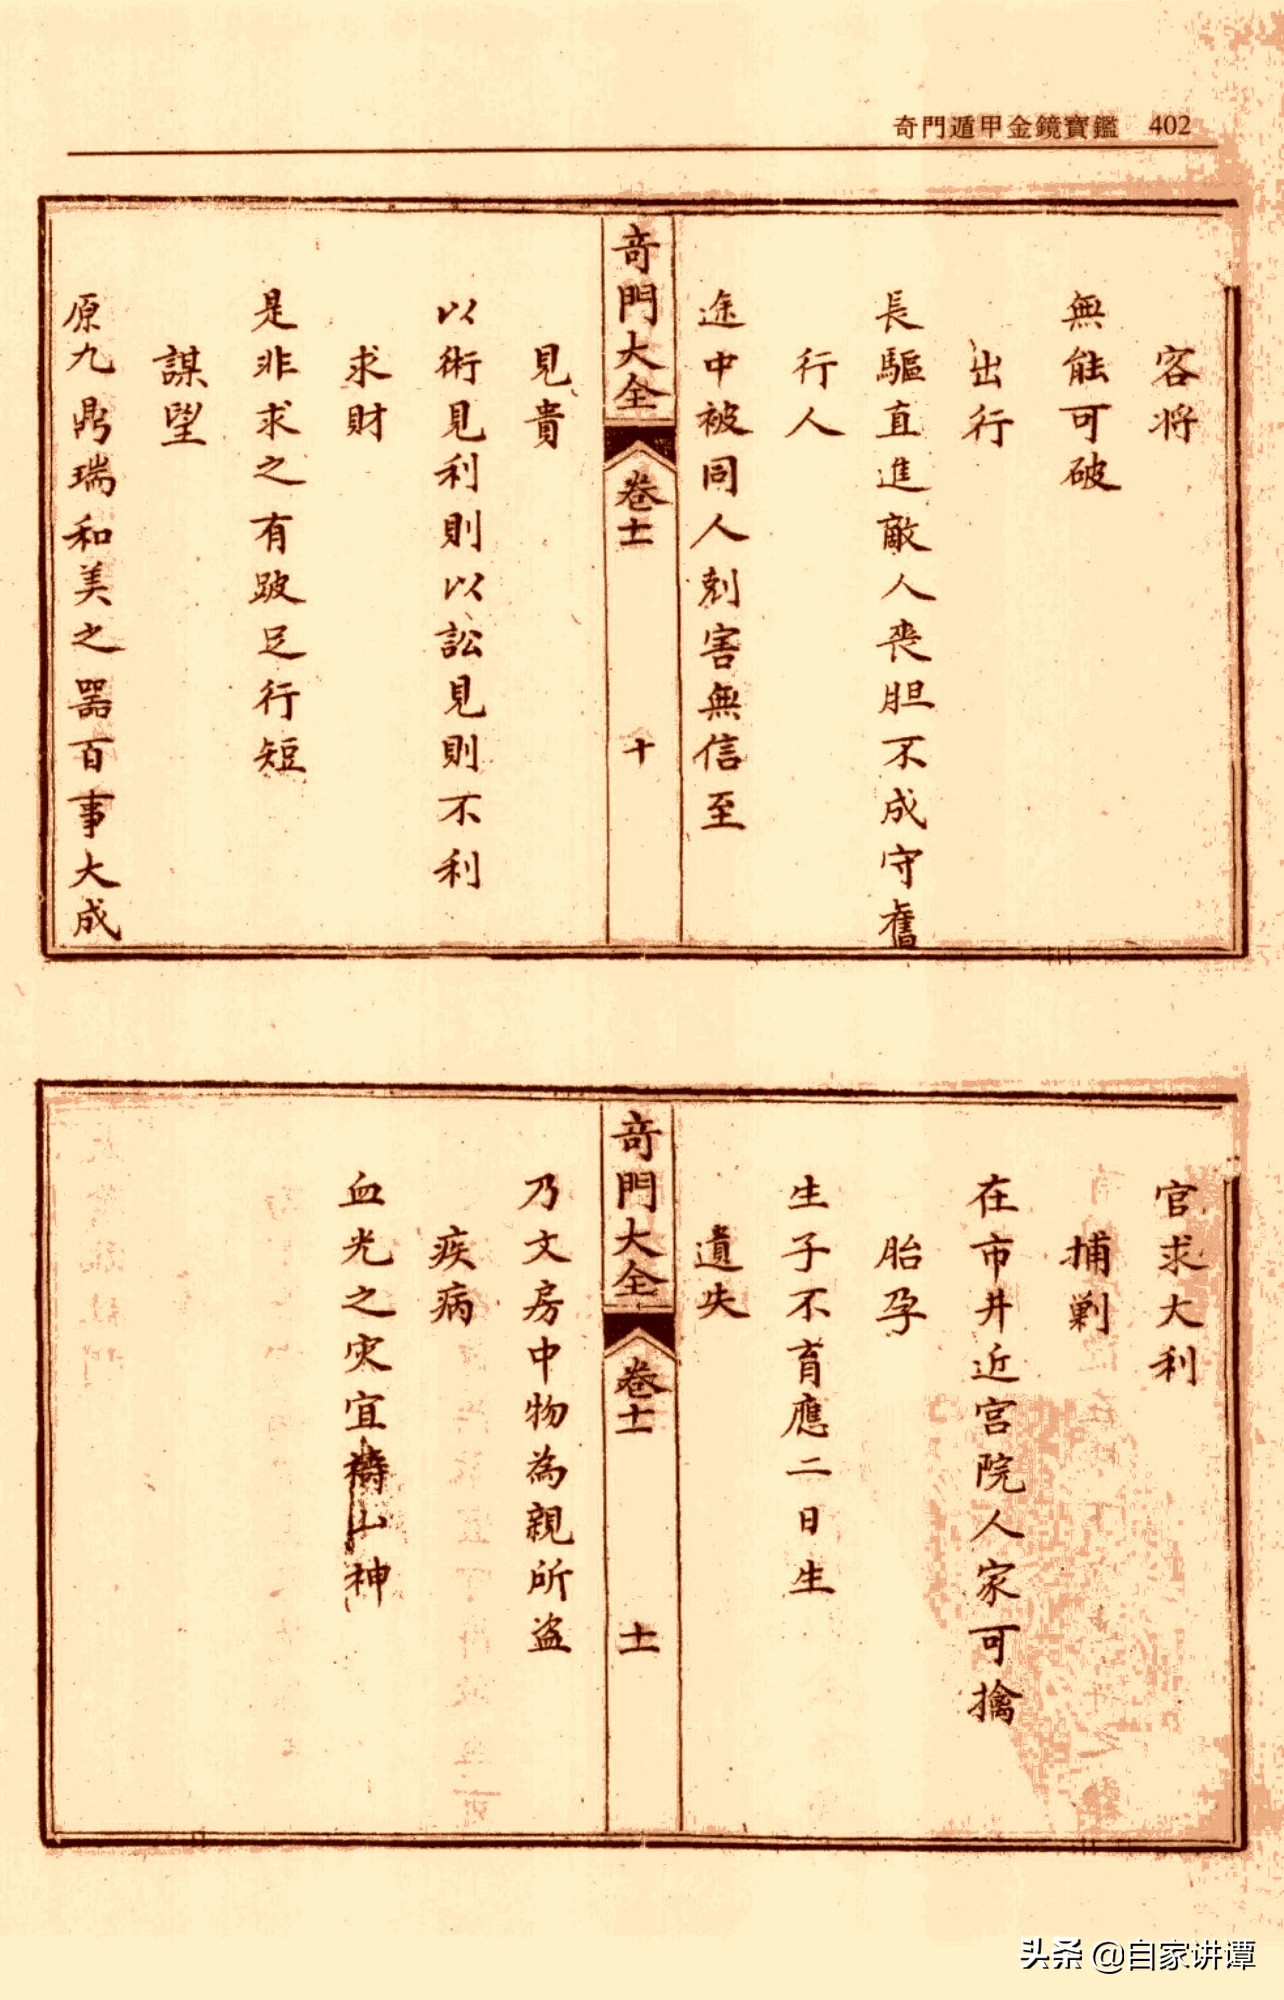 奇門遁甲金鏡寶鑑 402
客将
無能可破
出行
長驅直進敵人喪胆不成守舊
行人
途中被同人剋害無信至
奇門大全 卷十一 十
見貴
以術見利則以訟見則不利
求財
是非求之有跛足行短
謀望
原九鼎瑞和美之器百事大成
官求大利
捕剿
在市井近宫院人家可擒
胎孕
生子不育應二日生
遺失
奇門大全 卷十一 十一
乃文房中物為親所盗
疾病
血光之灾宜禱山神
头条 @自家讲谭